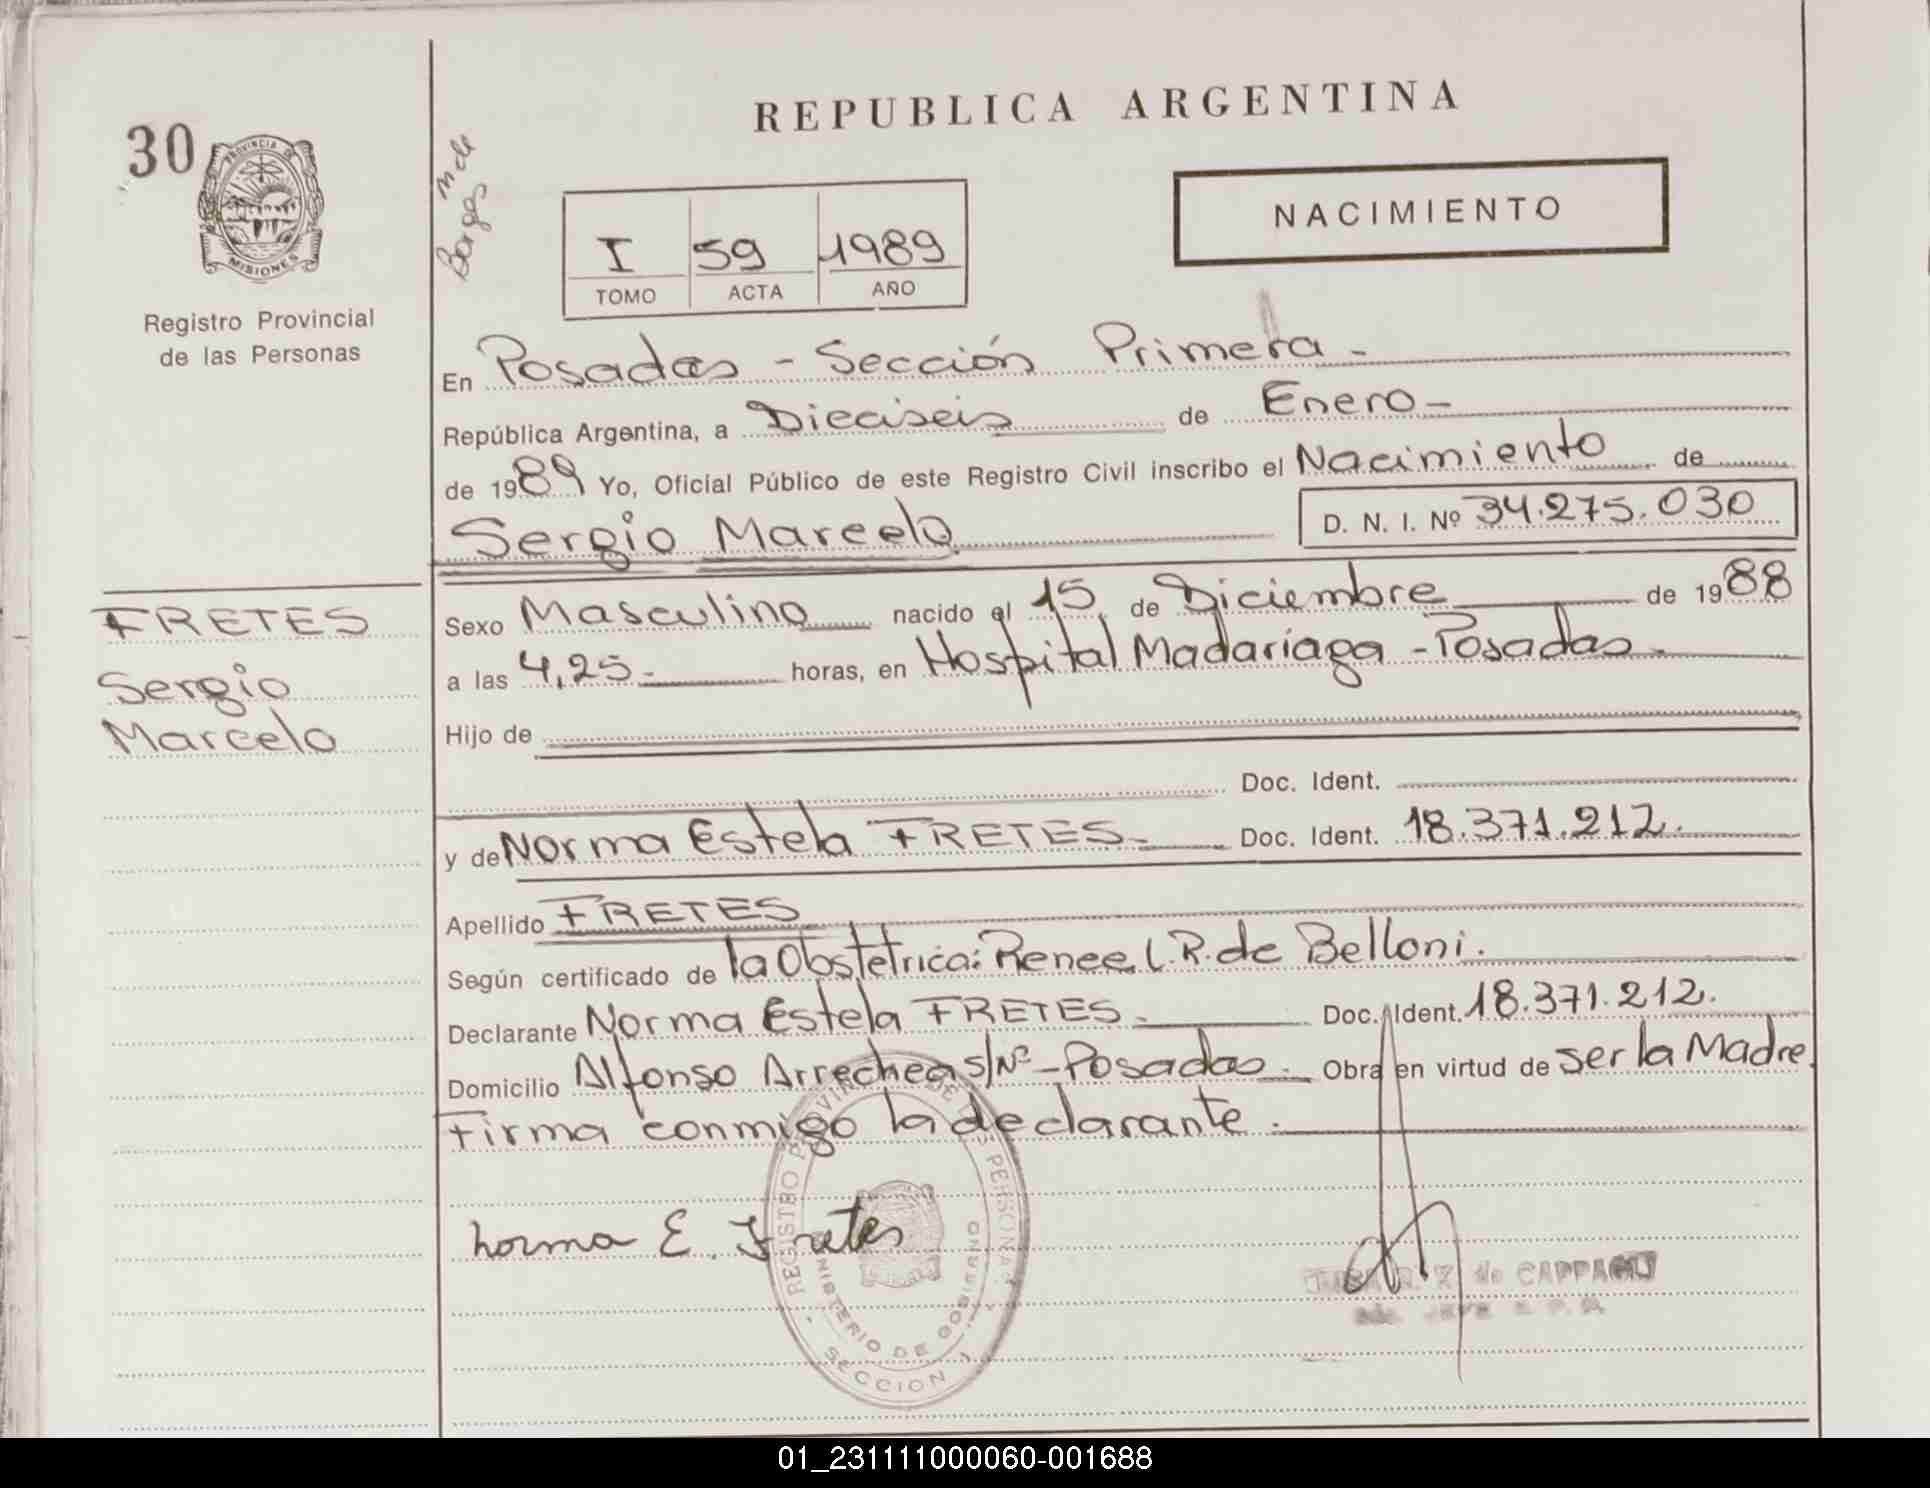 30
PROVINCIA DE
MISIONES
Registro Provincial
de las Personas
FRETES
Sergio
Marcelo
m de
Borges
REPUBLICA ARGENTINA
NACIMIENTO
I 59 1989
TOMO ACTA AÑO
En Posadas - Sección Primera -
República Argentina, a Dieciseis de Enero -
de 1989 Yo, Oficial Público de este Registro Civil inscribo el Nacimiento de
Sergio Marcelo D. N. I. Nº 34.275.030
Sexo Masculino nacido el 15 de Diciembre de 1988
a las 4,25 - horas, en Hospital Madariaga - Posadas -
Hijo de
Doc. Ident.
y de Norma Estela FRETES - Doc. Ident. 18.371.212.
Apellido FRETES
Según certificado de la Obstetrica: Renee L. R. de Belloni.
Declarante Norma Estela FRETES - Doc. Ident. 18.371.212.
Domicilio Alfonso Arrechea s/Nº - Posadas - Obra en virtud de ser la Madre.
Firma conmigo la declarante.
norma E. Fretes
REGISTRO PROVINCIAL DE LAS PERSONAS
MINISTERIO DE GOBIERNO
SECCION 1
de CAPPAGLI
01_231111000060-001688